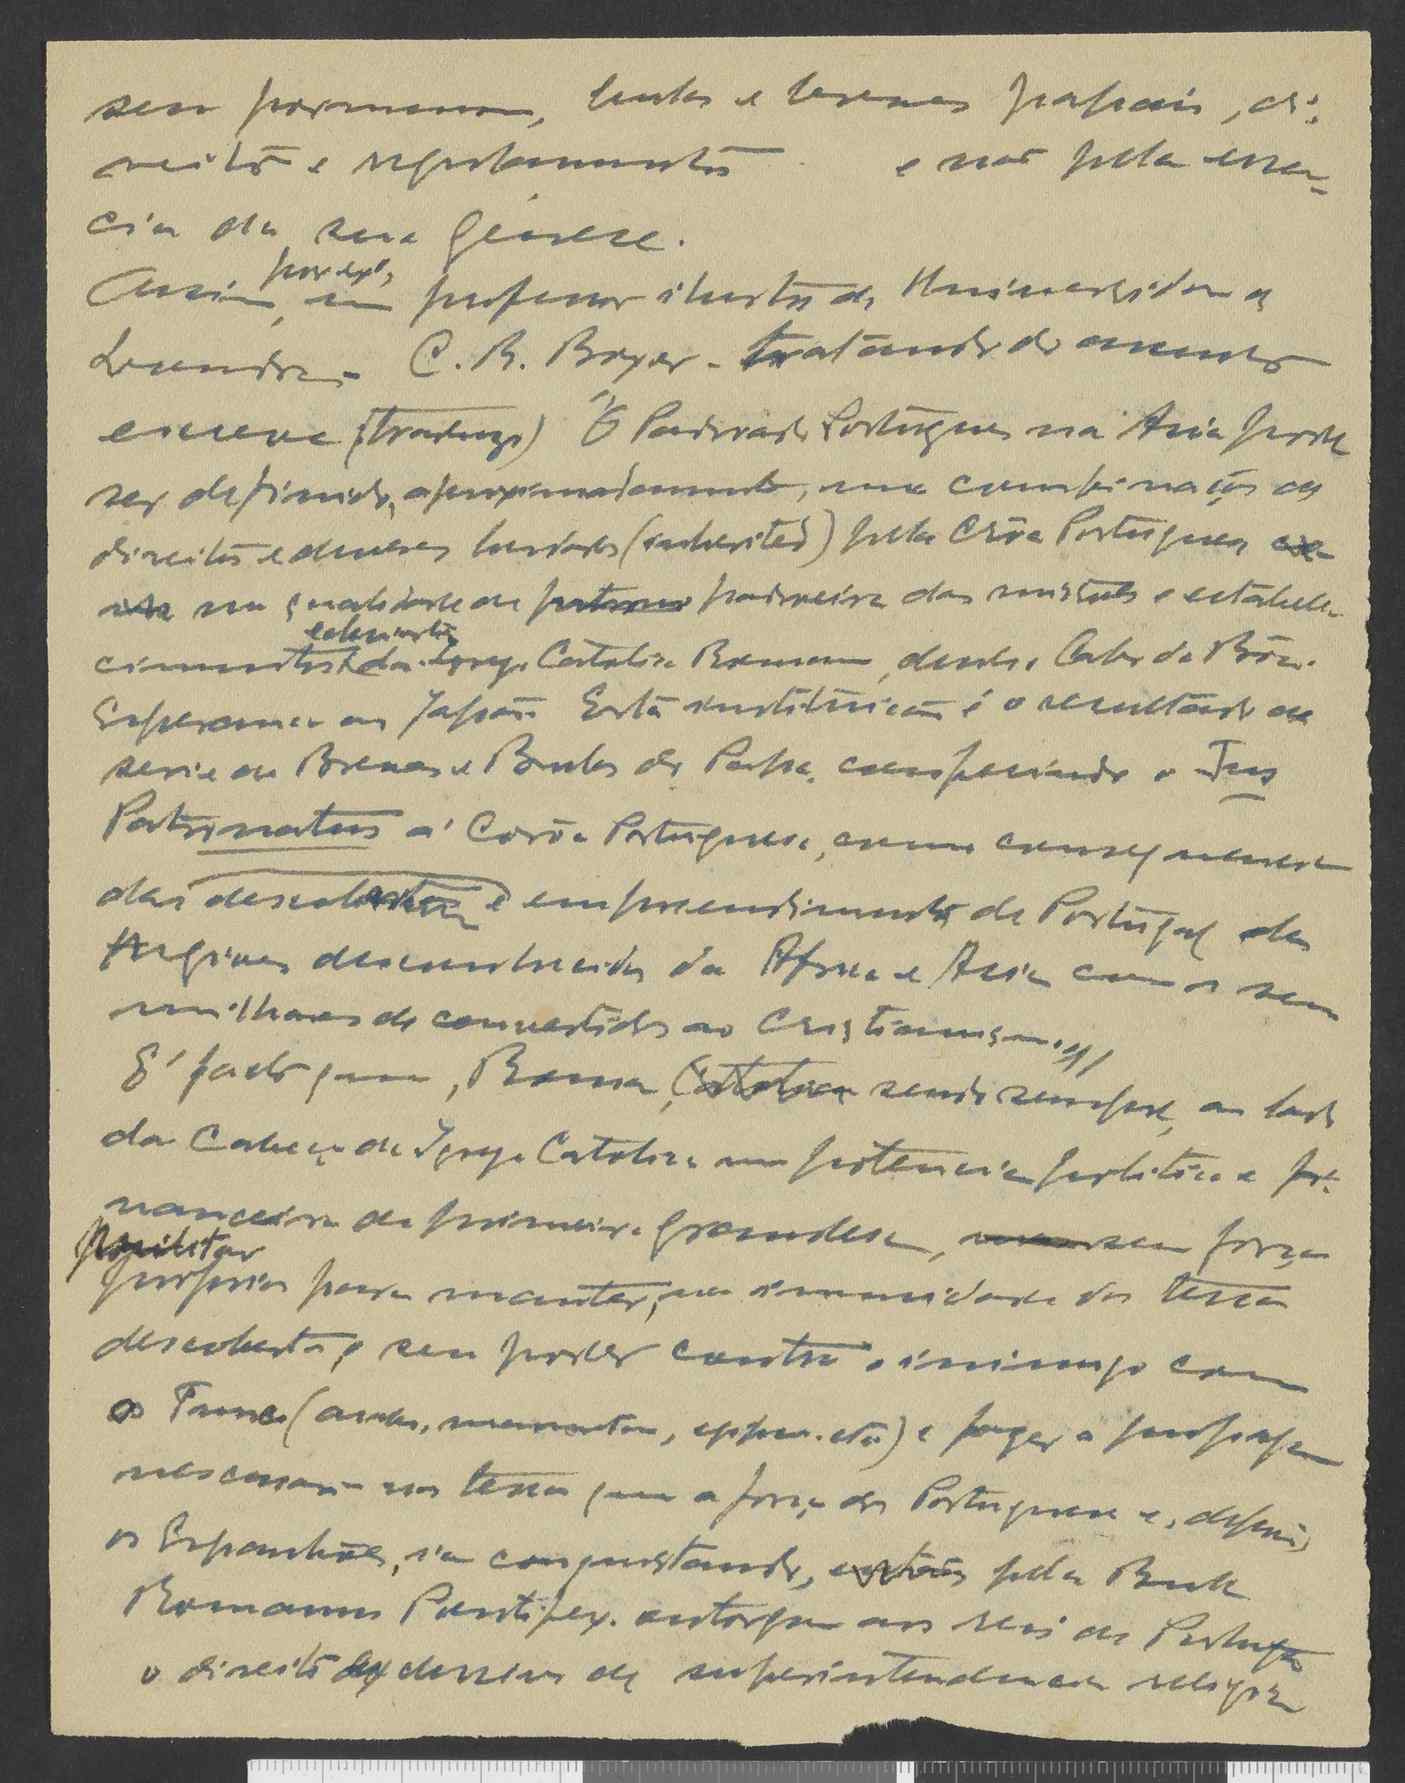 seu pormenor, bulas e breves papais, di-
reitos e regulamentos e não pela essen-
cia da sua génese.
Assim, por exº, um professor ilustre da Universidade de
Londres - C. R. Boxer - tratando do assunto
escreve (traduzo) "O Padroado Português na Asia pode
ser definido, aproximadamente, uma combinação de
direitos e deveres herdados (inherited) pela Crôa Portuguesa
na qualidade de padroeira das missões e estabele-
cimentos eclesiasticos da Igreja Catolica Romana, desde o Cabo da Bôa
Esperança ao Japão. Esta instituição é o resultado de
serie de Breves e Bulas do Papa, conferindo o Jus
Patronatus á Corôa Portuguesa, como consequencia
das descobertas e empreendimentos de Portugal das
regiões desconhecidas da Africa e Asia com os seus
milhares de convertidos ao Cristianismo."
E' facto que, Roma, sendo sempre, ao lado
da Cabeça da Igreja Catolica uma potencia politica e fi-
nanceira de primeira grandesa, sem força
militar propria para manter, na imensidade das terras
descobertas, o seu poder contra o inimigo com
os Turcos (arabes, ) e fazer a propaganda
necessaria nas terras que a força dos Portugueses e, depois,
os Espanhóes, ia conquistando, pela Bula
Romanus Pontifex. outorgou aos reis de Portugal
o direito exclusivo de superintendencia religiosa